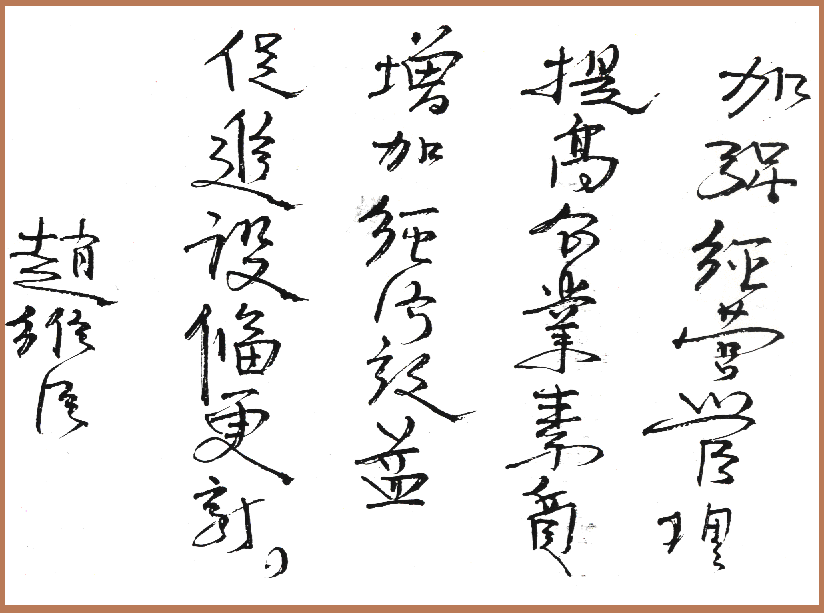 加強經營管理
提高企業素質
增加經济效益
促進設備更新。
趙維臣